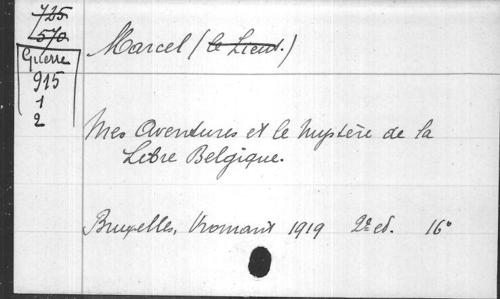 725
570
Guerre
915
1
2
Marcel (le Lieut.)
Mes Aventures et le Mystère de la
Libre Belgique.
Bruxelles, Vromant 1919 2e ed. 16°